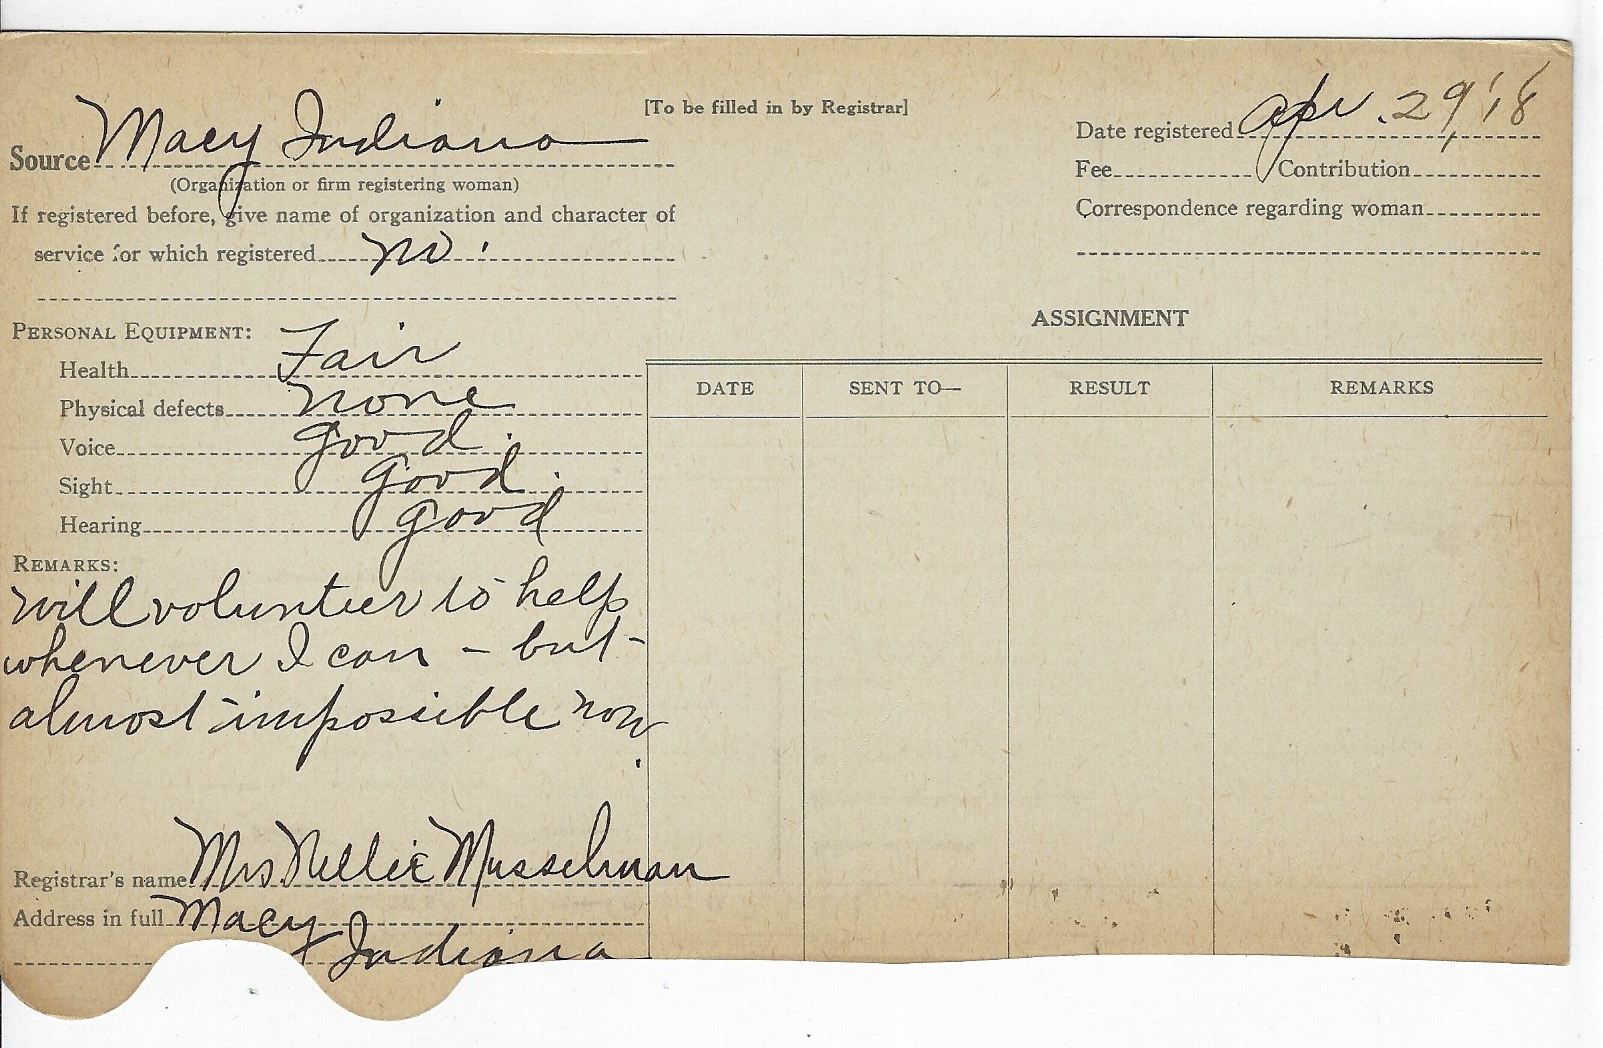 [To be filled in by Registrar]
Source Macy Indiana
(Organization or firm registering woman)
If registered before, give name of organization and character of
service for which registered no.
PERSONAL EQUIPMENT:
Health Fair
Physical defects none
Voice good.
Sight Good.
Hearing good
REMARKS:
will volunteer to help
whenever I can - but
almost impossible now
.
Registrar's name Mrs Nellie Musselman
Address in full Macy
Indiana
Date registered Apr. 29, '18
Fee Contribution
Correspondence regarding woman
ASSIGNMENT
DATE SENT TO— RESULT REMARKS